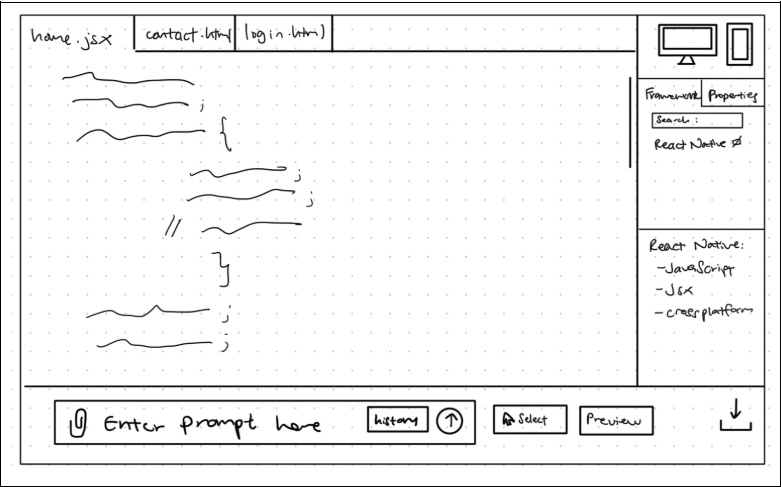 home.jsx
contact.html
login.html
;
{
;
;
//
}
;
;
Framework
Properties
Search :
React Native
React Native:
-JavaScript
-Jsx
-crossplatform
Enter prompt here
history
Select
Preview